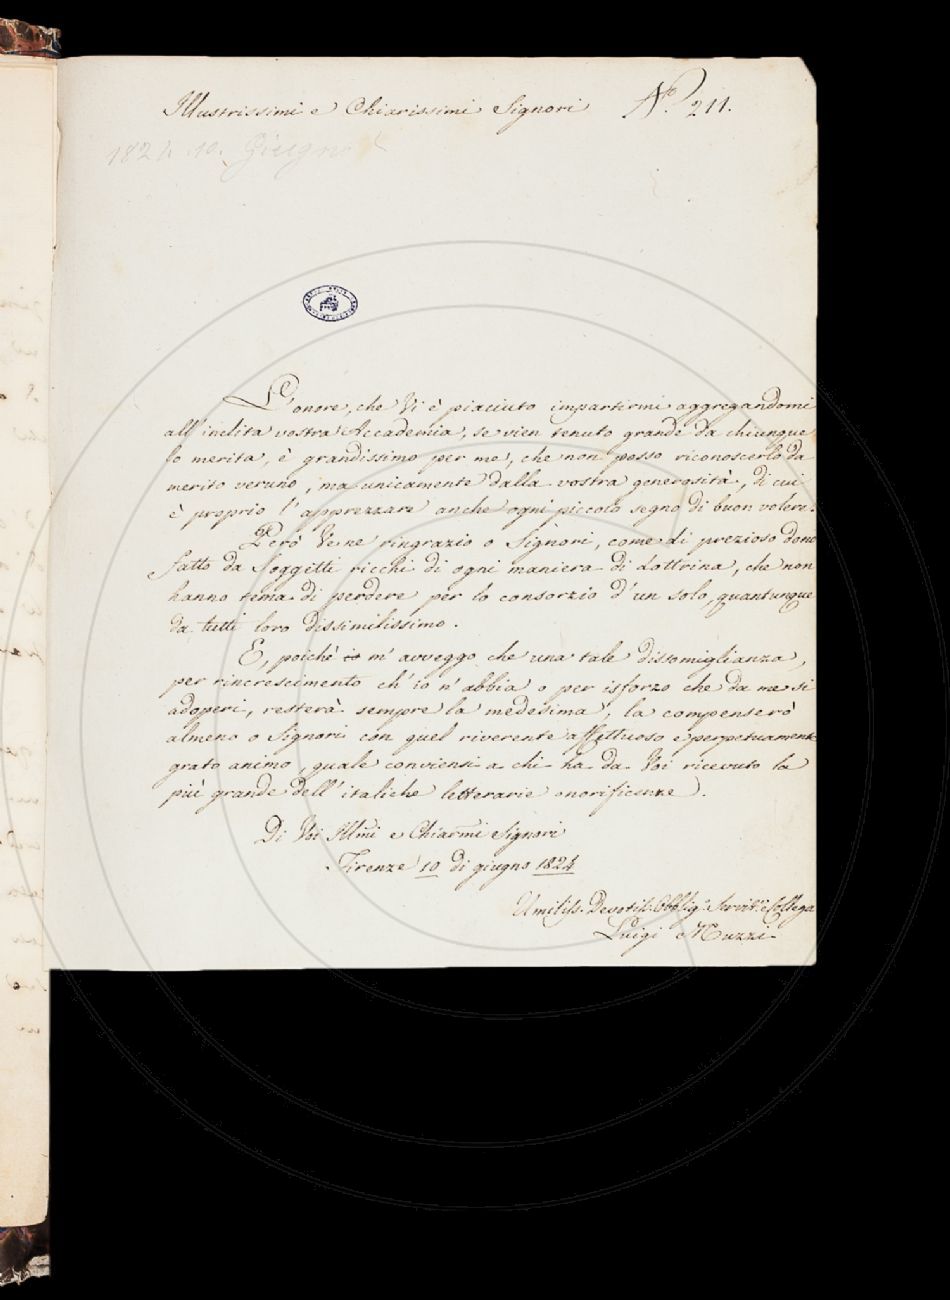 Illustrissimi e Chiarissimi Signori No. 211.
1824 10. Giugno
L'onore, che Vi è piaciuto impartirmi aggregandomi
all'inclita vostra Accademia, se vien tenuto grande da chiunque
lo merita, è grandissimo per me, che non posso riconoscerlo da
merito veruno, ma unicamente dalla vostra generosità, di cui
è proprio l'apprezzare anche ogni piccolo segno di buon volere.
Però Ve ne ringrazio o Signori, come di prezioso dono
fatto da Soggetti ricchi di ogni maniera di dottrina, che non
hanno tema di perdere per lo consorzio d'un solo, quantunque
da tutti loro dissimilissimo.
E, poichè io m'avveggo che una tale dissomiglianza,
per rincrescimento ch'io n'abbia o per isforzo che da me si
adoperi, resterà sempre la medesima, la compenserò
almeno o Signori con quel riverente affettuoso e perpetuamente
grato animo, quale conviensi a chi ha da Voi ricevuto la
più grande dell'italiche letterarie onorificenze.
Di Voi Illmi e Chiarmi Signori
Firenze 10 di giugno 1824
Umiliss. Devotiss. Obblig. Servit. e Collega
Luigi Muzzi